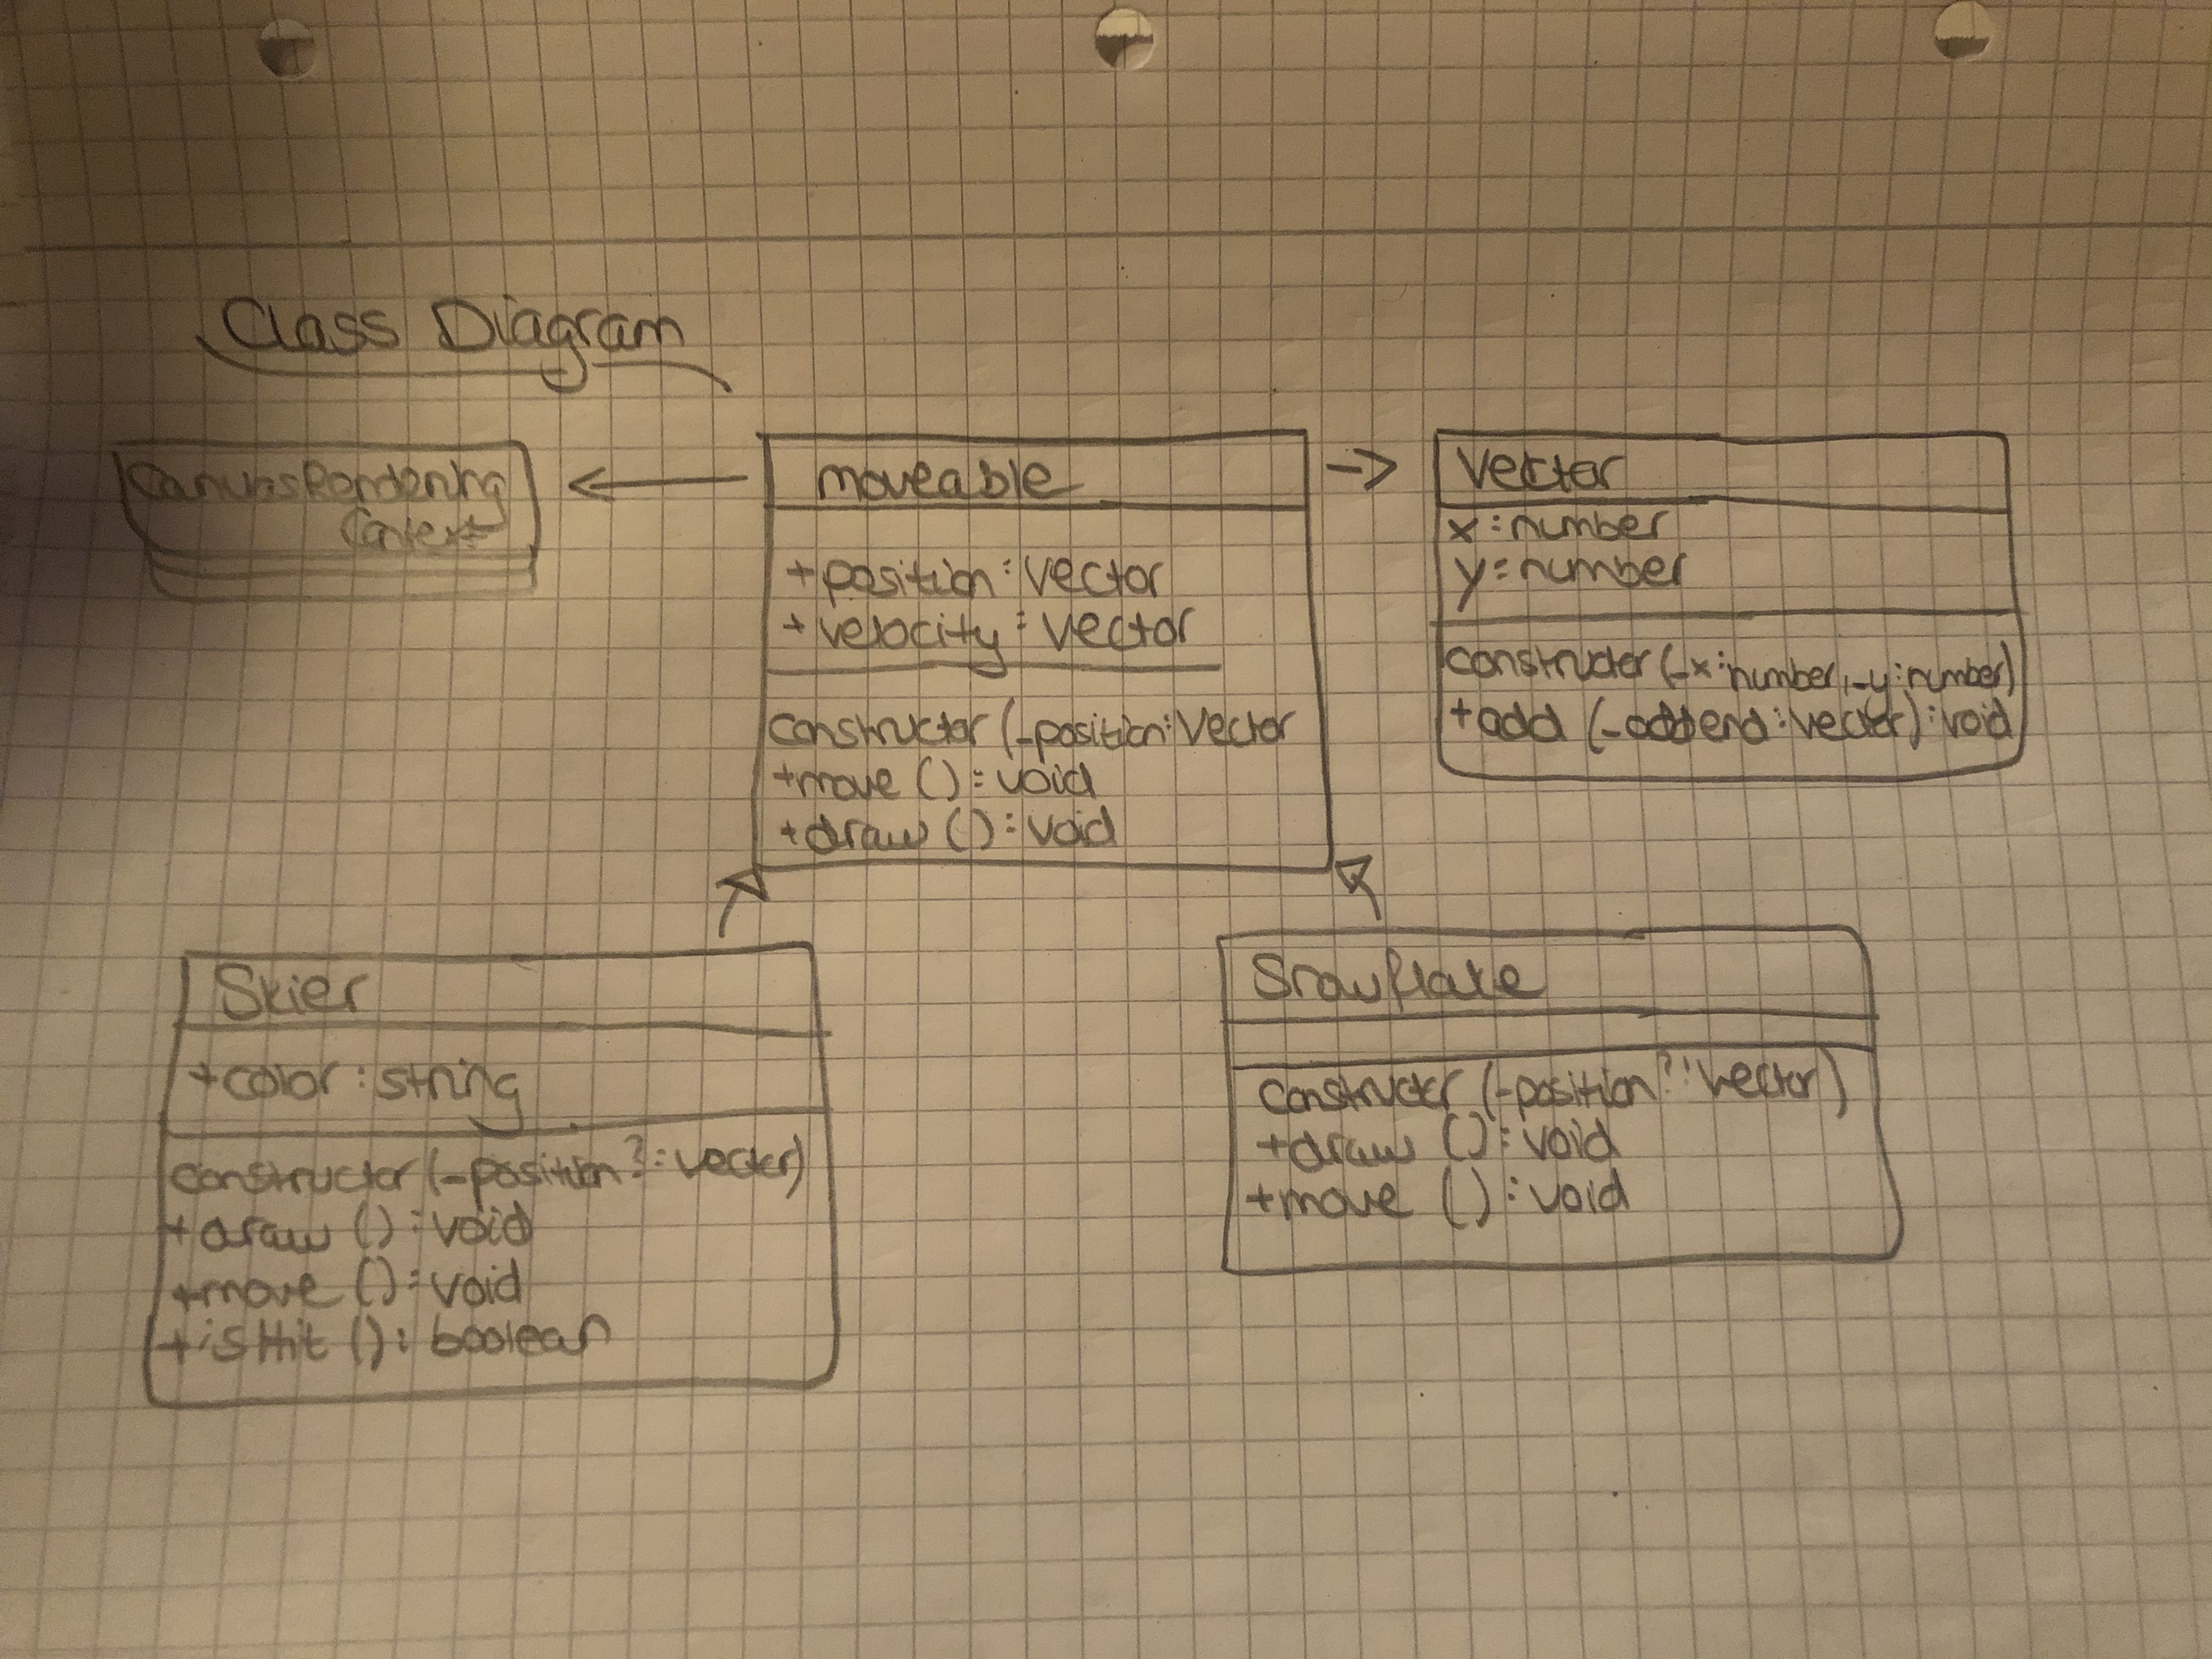 Class Diagram
Canvas Rendering
Context
moveable
+ position : Vector
+ velocity : Vector
Constructor (_position : Vector
+move () : void
+draw () : void
Vector
x : number
y : number
constructor (_x : number, _y : number)
+ add (_addend : vector) : void
Skier
+ color : string
Constructor (_position? : vector)
+ draw () : void
+move () : void
+ isHit () : boolean
Snowflake
Constructor (_position? : Vector)
+draw () : void
+move () : void